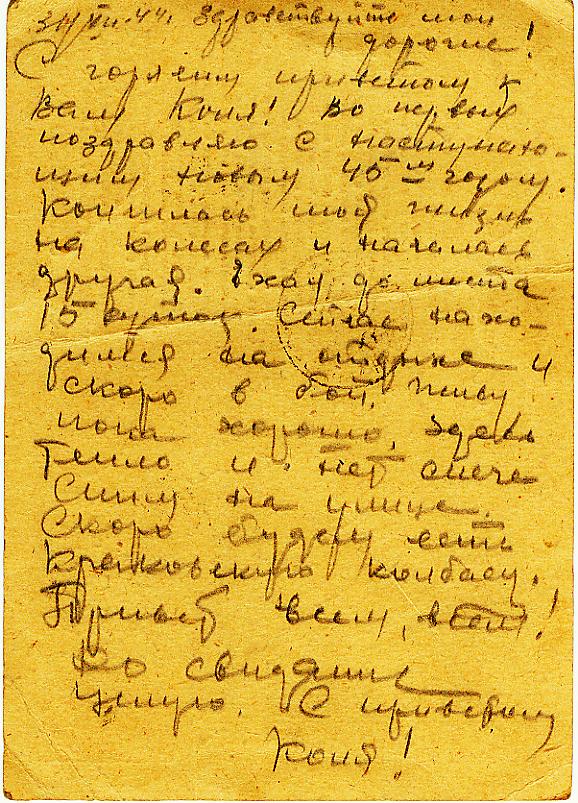 31/XII-44г. Здравствуйте мои
дорогие!
С горячим приветом к
Вам Коля! Во первых
поздравляю с наступаю-
щим Новым 45-ым годом.
Кончилась моя жизнь
на колесах и началась
другая. Ехал до места
15 суток. Сейчас нахо-
димся на отдыхе и
скоро в бой. Живу
пока хорошо, здесь
тепло и нет снега
Спим на улице.
Скоро будем есть
Краковскую колбасу.
Привет всем, всем!
До свидание
Целую. С приветом
Коля!